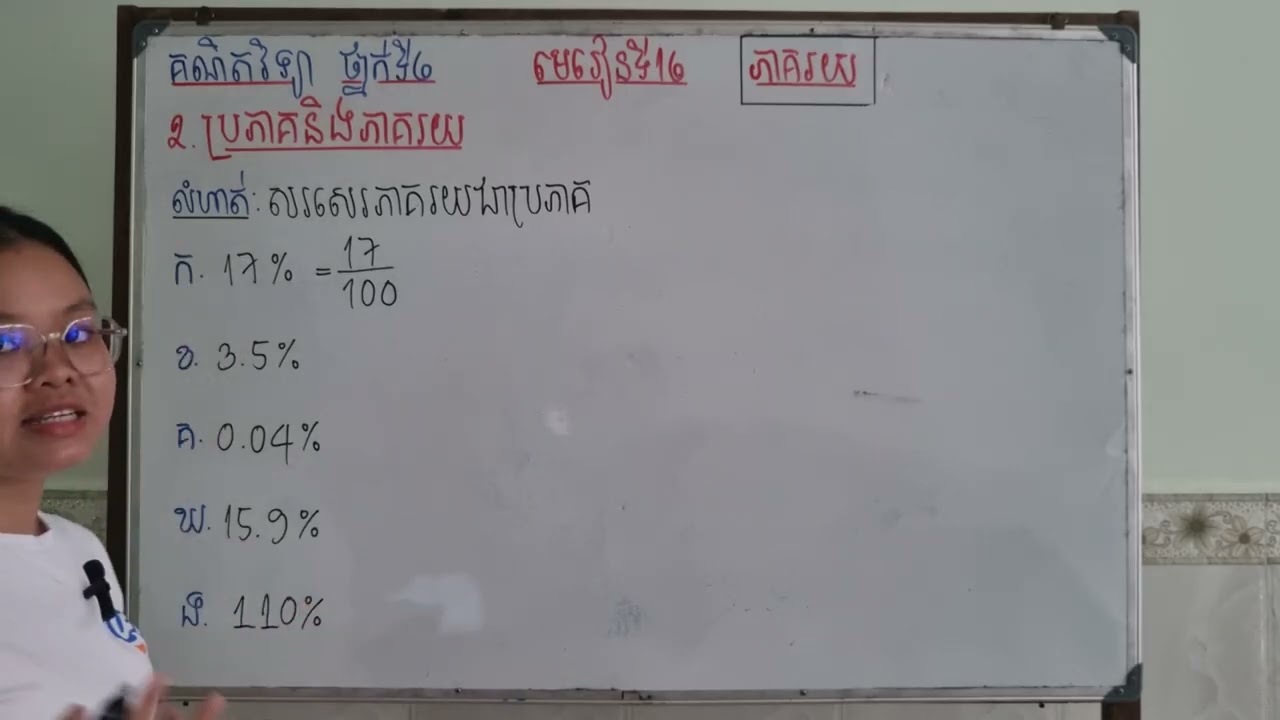 គណិតវិទ្យា ថ្នាក់ទី៦ មេរៀនទី១៦ ភាគរយ
២. ប្រភាគនិងភាគរយ
លំហាត់: សរសេរភាគរយជាប្រភាគ
ក. 17% = 17/100
ខ. 3.5%
គ. 0.04%
ឃ. 15.9%
ង. 110%